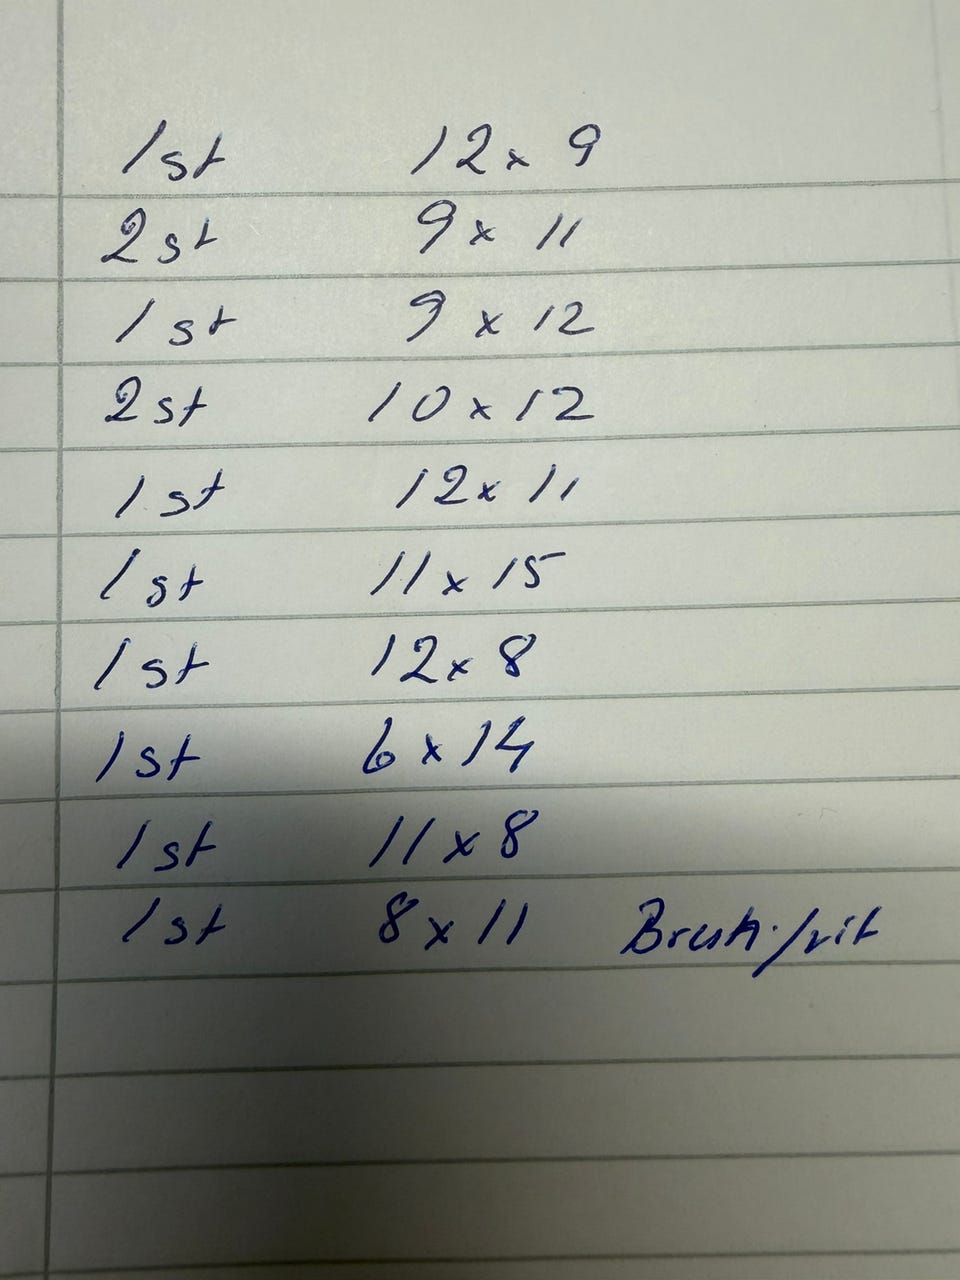 1st 12x 9
2st 9x 11
1st 9 x 12
2st 10x12
1st 12x 11
1st 11x 15
1st 12x 8
1st 6x14
1st 11x8
1st 8x11 /vit